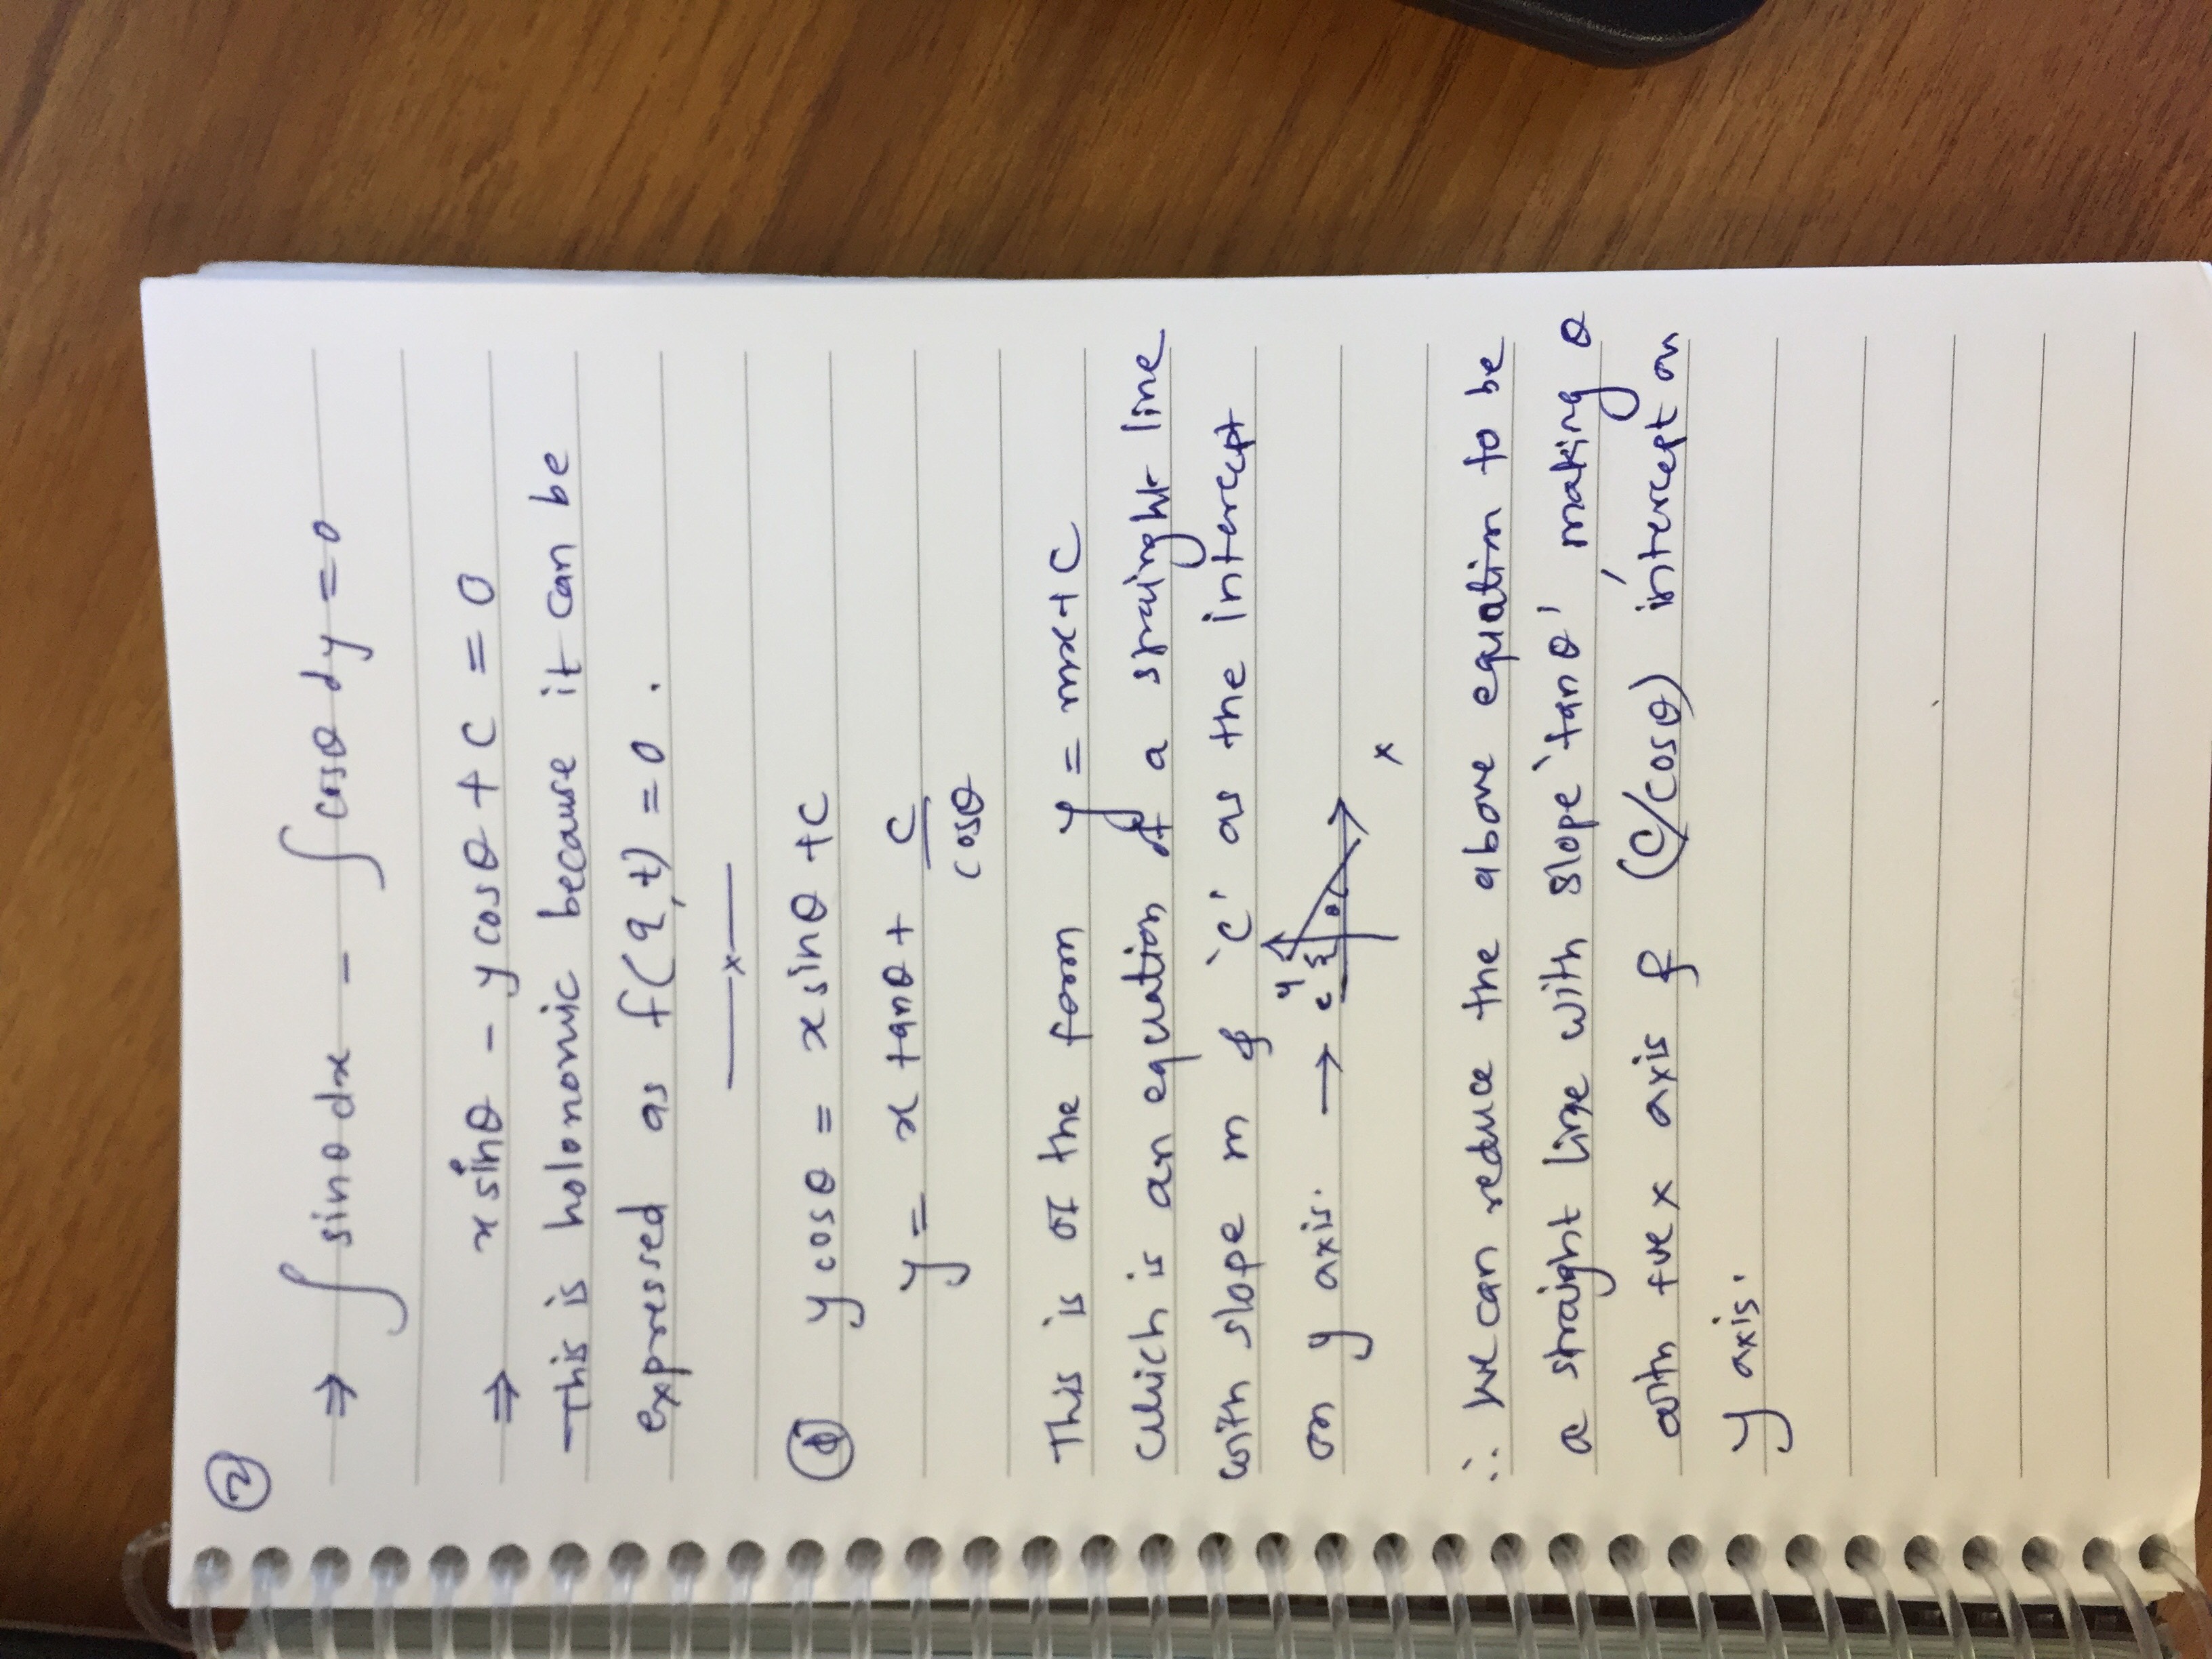 ②
⇒ ∫ sinθ dx - ∫ cosθ dy = 0
⇒ x sinθ - y cosθ + c = 0
This is holonomic because it can be
expressed as f(q,t) = 0 .
—x—
① y cosθ = x sinθ + c
y = x tanθ + c/cosθ
This is of the form y = mx + c
which is an equation of a strainght line
with slope m & 'c' as the intercept
on y axis. → y c θ
x
∴ We can reduce the above equation to be
a straight line with slope 'tanθ', making θ
with +ve x axis & (c/cosθ) intercept on
y axis.